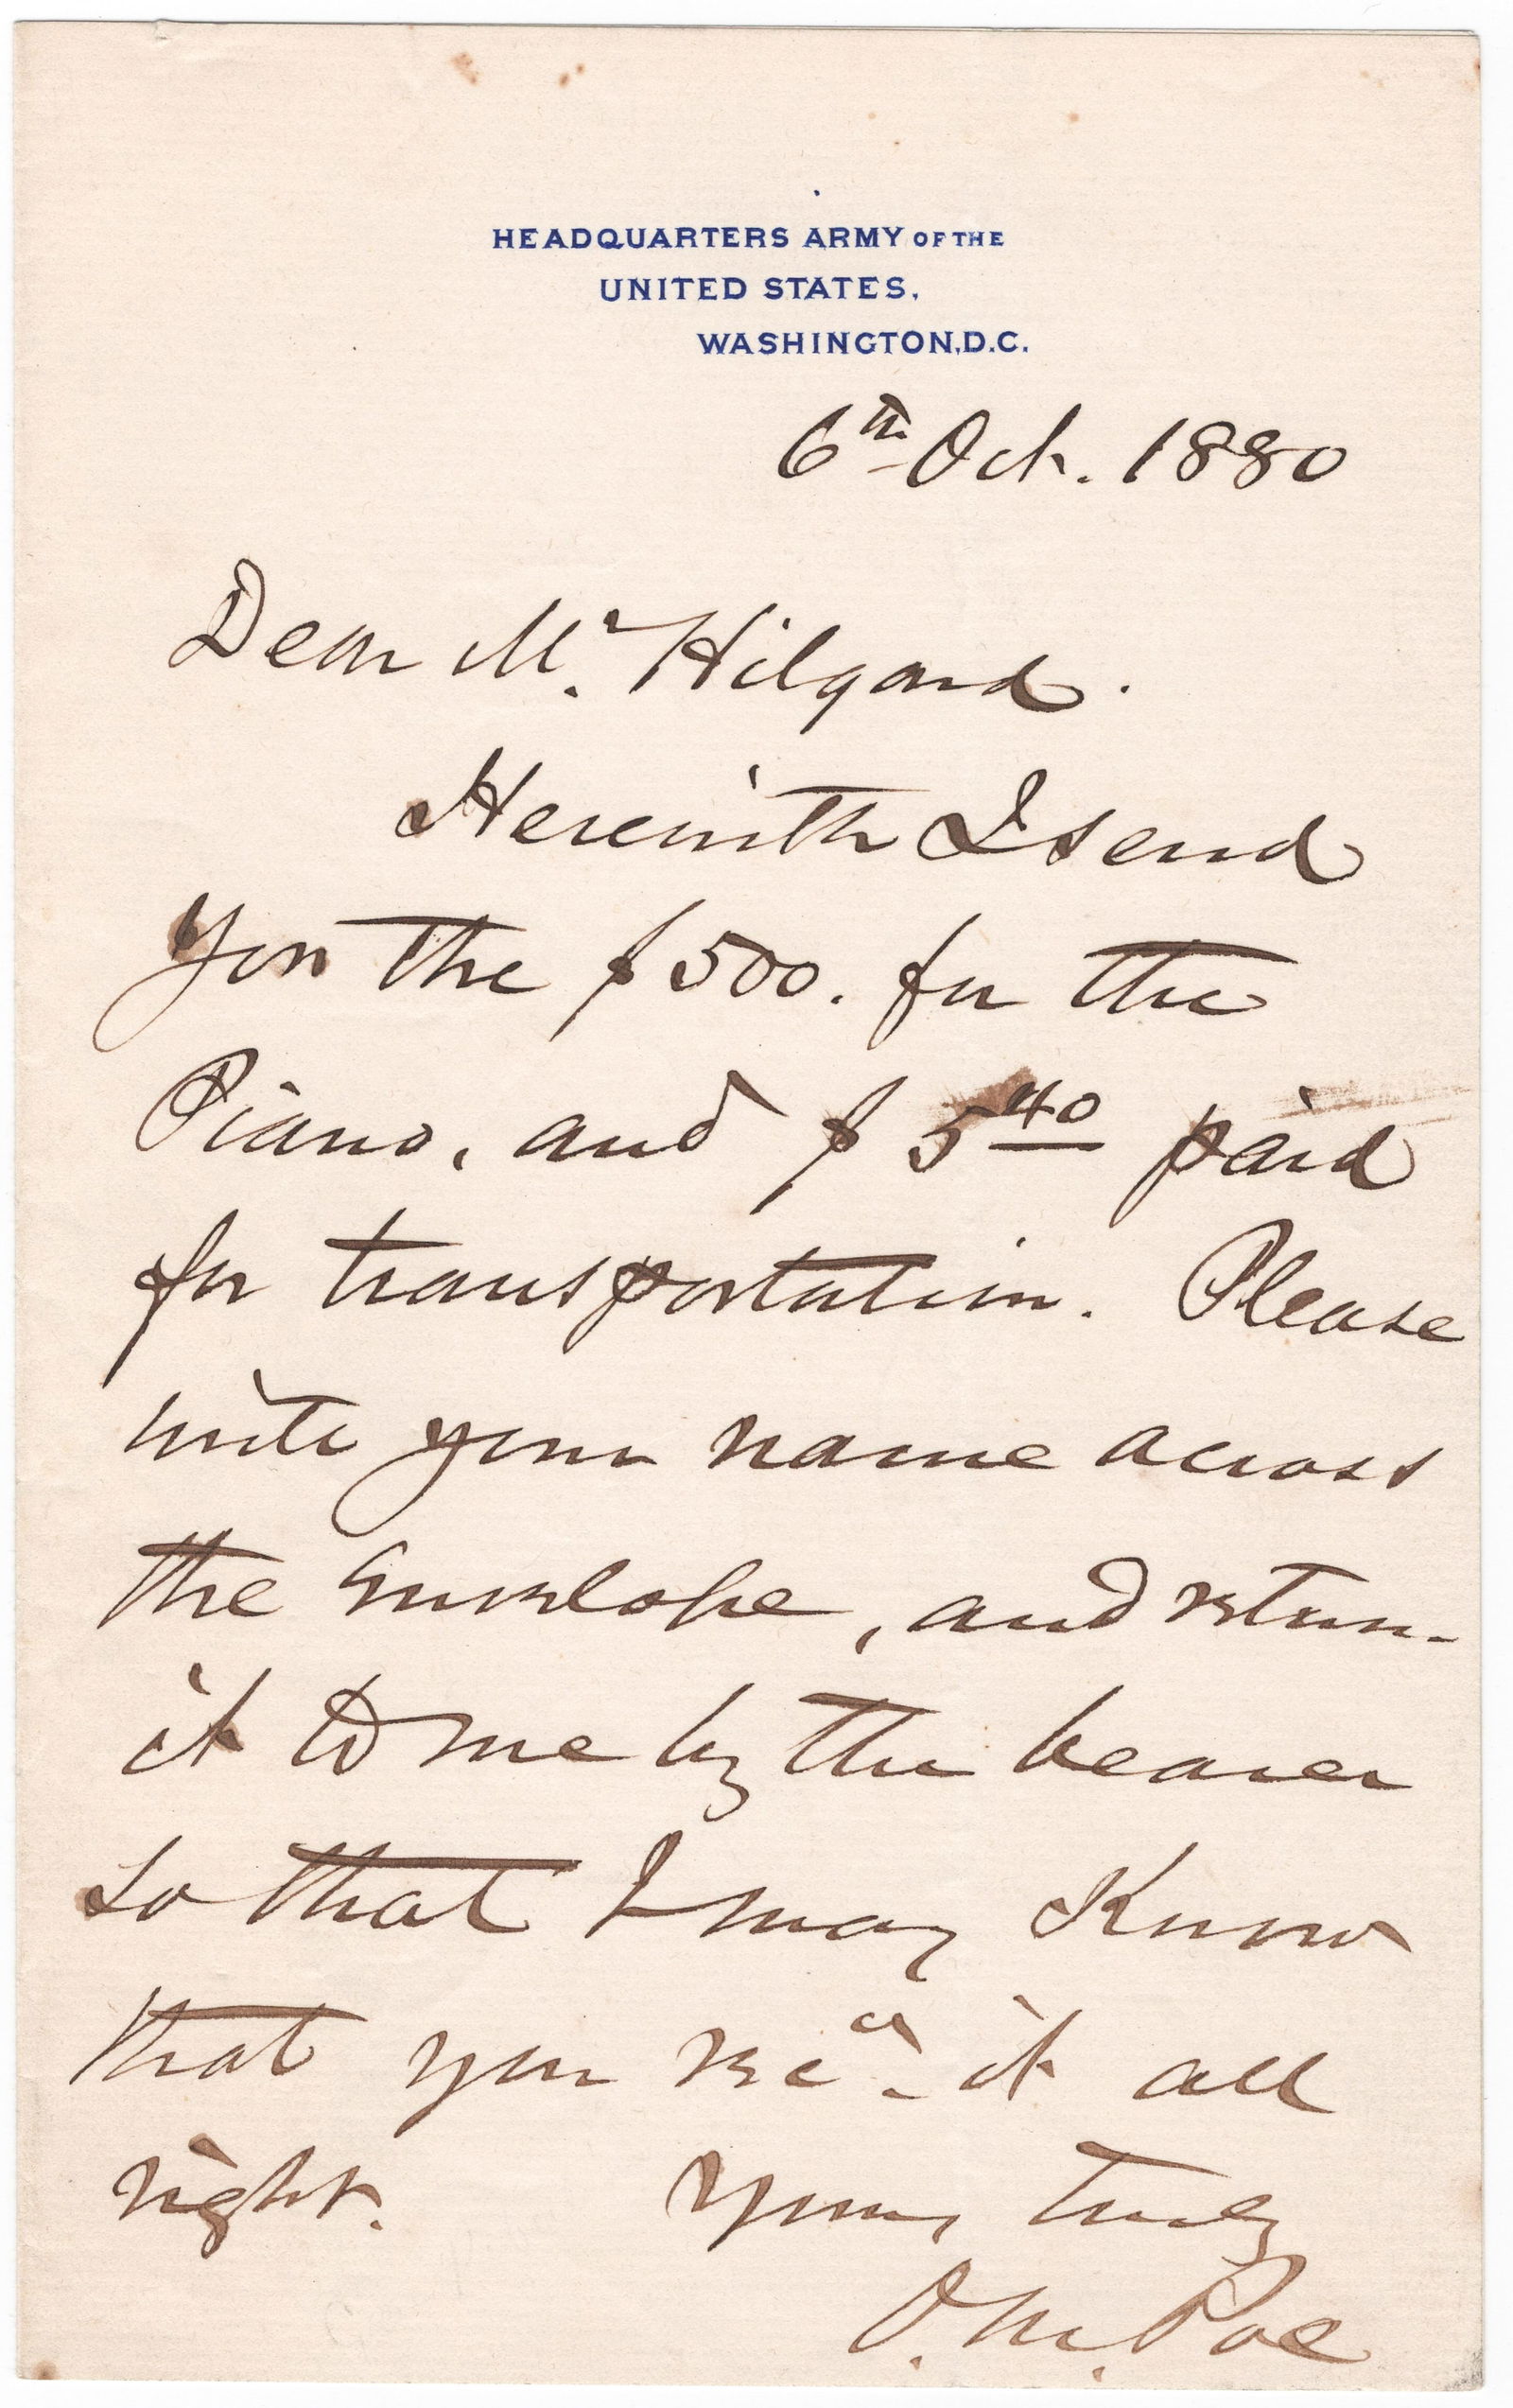 HEADQUARTERS ARMY OF THE
UNITED STATES,
WASHINGTON, D.C.
6th Oct. 1880
Dear Mr. Hilgard.
Herewith I send
you the $500. for the
Piano, and $5 40 paid
for transportation. Please
write your name across
the Envelope, and return
it to me by the bearer
so that I may Know
that you rec'd it all
right. Yours truly
O. M. Poe